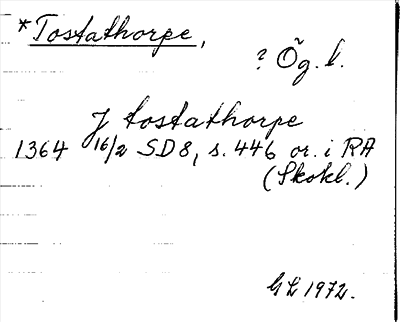 *Tostathorpe,
? Ög. l.
J tostathorpe
1364 16/2 SD 8, s. 446 or. i RA
(Skokl.)
GL 1972.